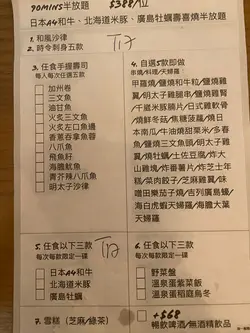 90MINS半放題 $388/位
日本A4和牛、北海道米豚、廣島牡蠣壽喜燒半放題
1. 和風沙律
2. 時令刺身五款
T17
3. 任食手握壽司
每人每次任選五款
加州卷
三文魚
油甘魚
火炙三文魚
火炙左口魚邊
香蔥吞拿魚蓉
八爪魚
飛魚籽
海膽魷魚
青芥辣八爪魚
明太子沙律
4. 自選5款即做
串燒/料理/天婦羅
甲羅燒/燒豬肉和牛粒/鹽燒雞
翼/明太子雞腿串/鹽燒雞腎/
千歲水豚願片/日式雞軟骨
/燒鮮冬菇/焦糖菠蘿/燒日
本南瓜/牛油燒甜粟米/多春
魚/照燒豆腐/明太子雞
翼/燒牡蠣/土佐豆腐/炸大
山雞塊/炸番薯片/炸芝士年
糕/菜肉餃子/芝麻雞翼/味
噌田樂茄子燒/吉列廣島蠔/
海白虎蝦天婦羅/海膽大葉
天婦羅
5. 任食以下三款
每次每款限定一碟
T17
日本A4和牛
北海道米豚
廣島牡蠣
6. 任食以下三款
每次每款限定一碟
野菜盤
溫泉蛋紫菜飯
溫泉蛋稻庭烏冬
7. 雪糕 (芝麻/綠茶)
+$68
暢飲啤酒/無酒精飲品